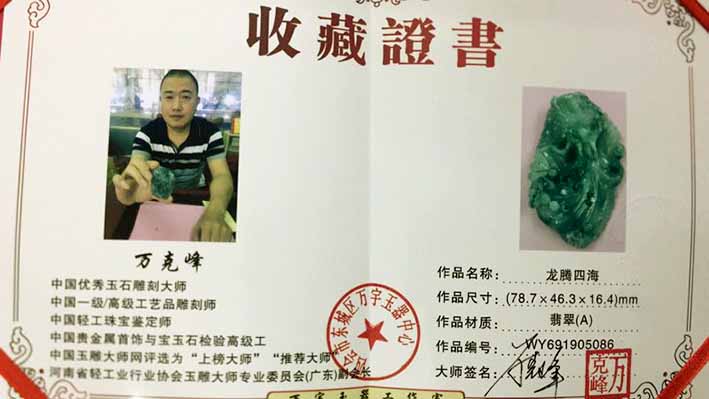 收藏證書
万克峰
中国优秀玉石雕刻大师
中国一级/高级工艺品雕刻师
中国轻工珠宝鉴定师
中国贵金属首饰与宝玉石检验高级工
中国玉雕大师网评选为“上榜大师”“推荐大师”
河南省轻工业行业协会玉雕大师专业委员会(广东)副会长
会市东城区万宇玉器中心
作品名称: 龙腾四海
作品尺寸: (78.7×46.3×16.4)mm
作品材质: 翡翠(A)
作品编号: WY691905086
大师签名:
万克峰